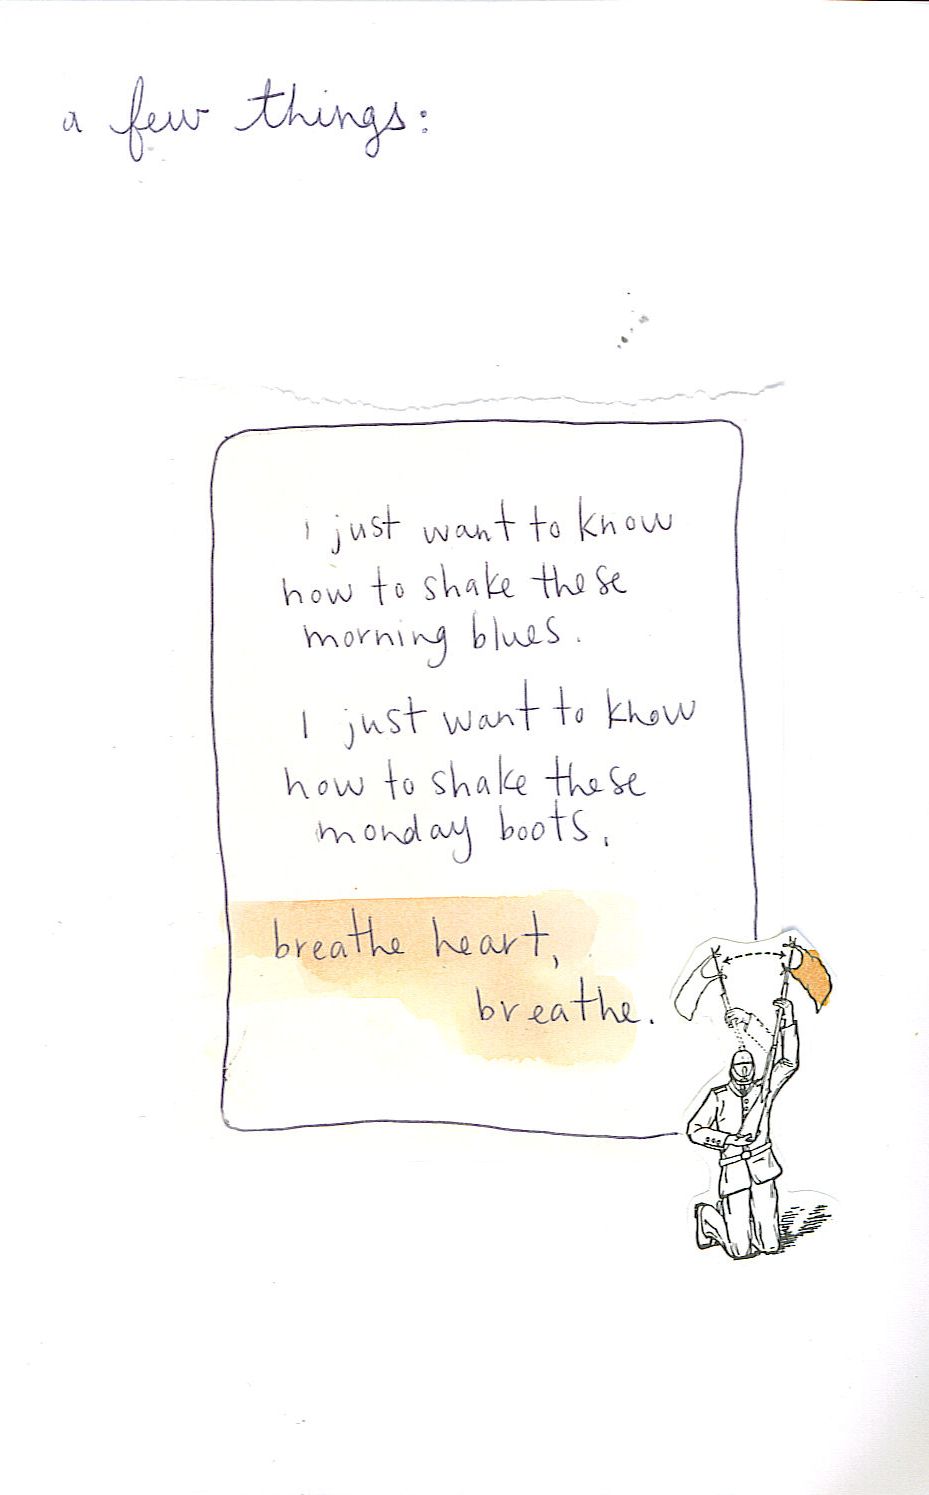 a few things:
i just want to know
how to shake these
morning blues.
I just want to know
how to shake these
monday boots.
breathe heart,
breathe.